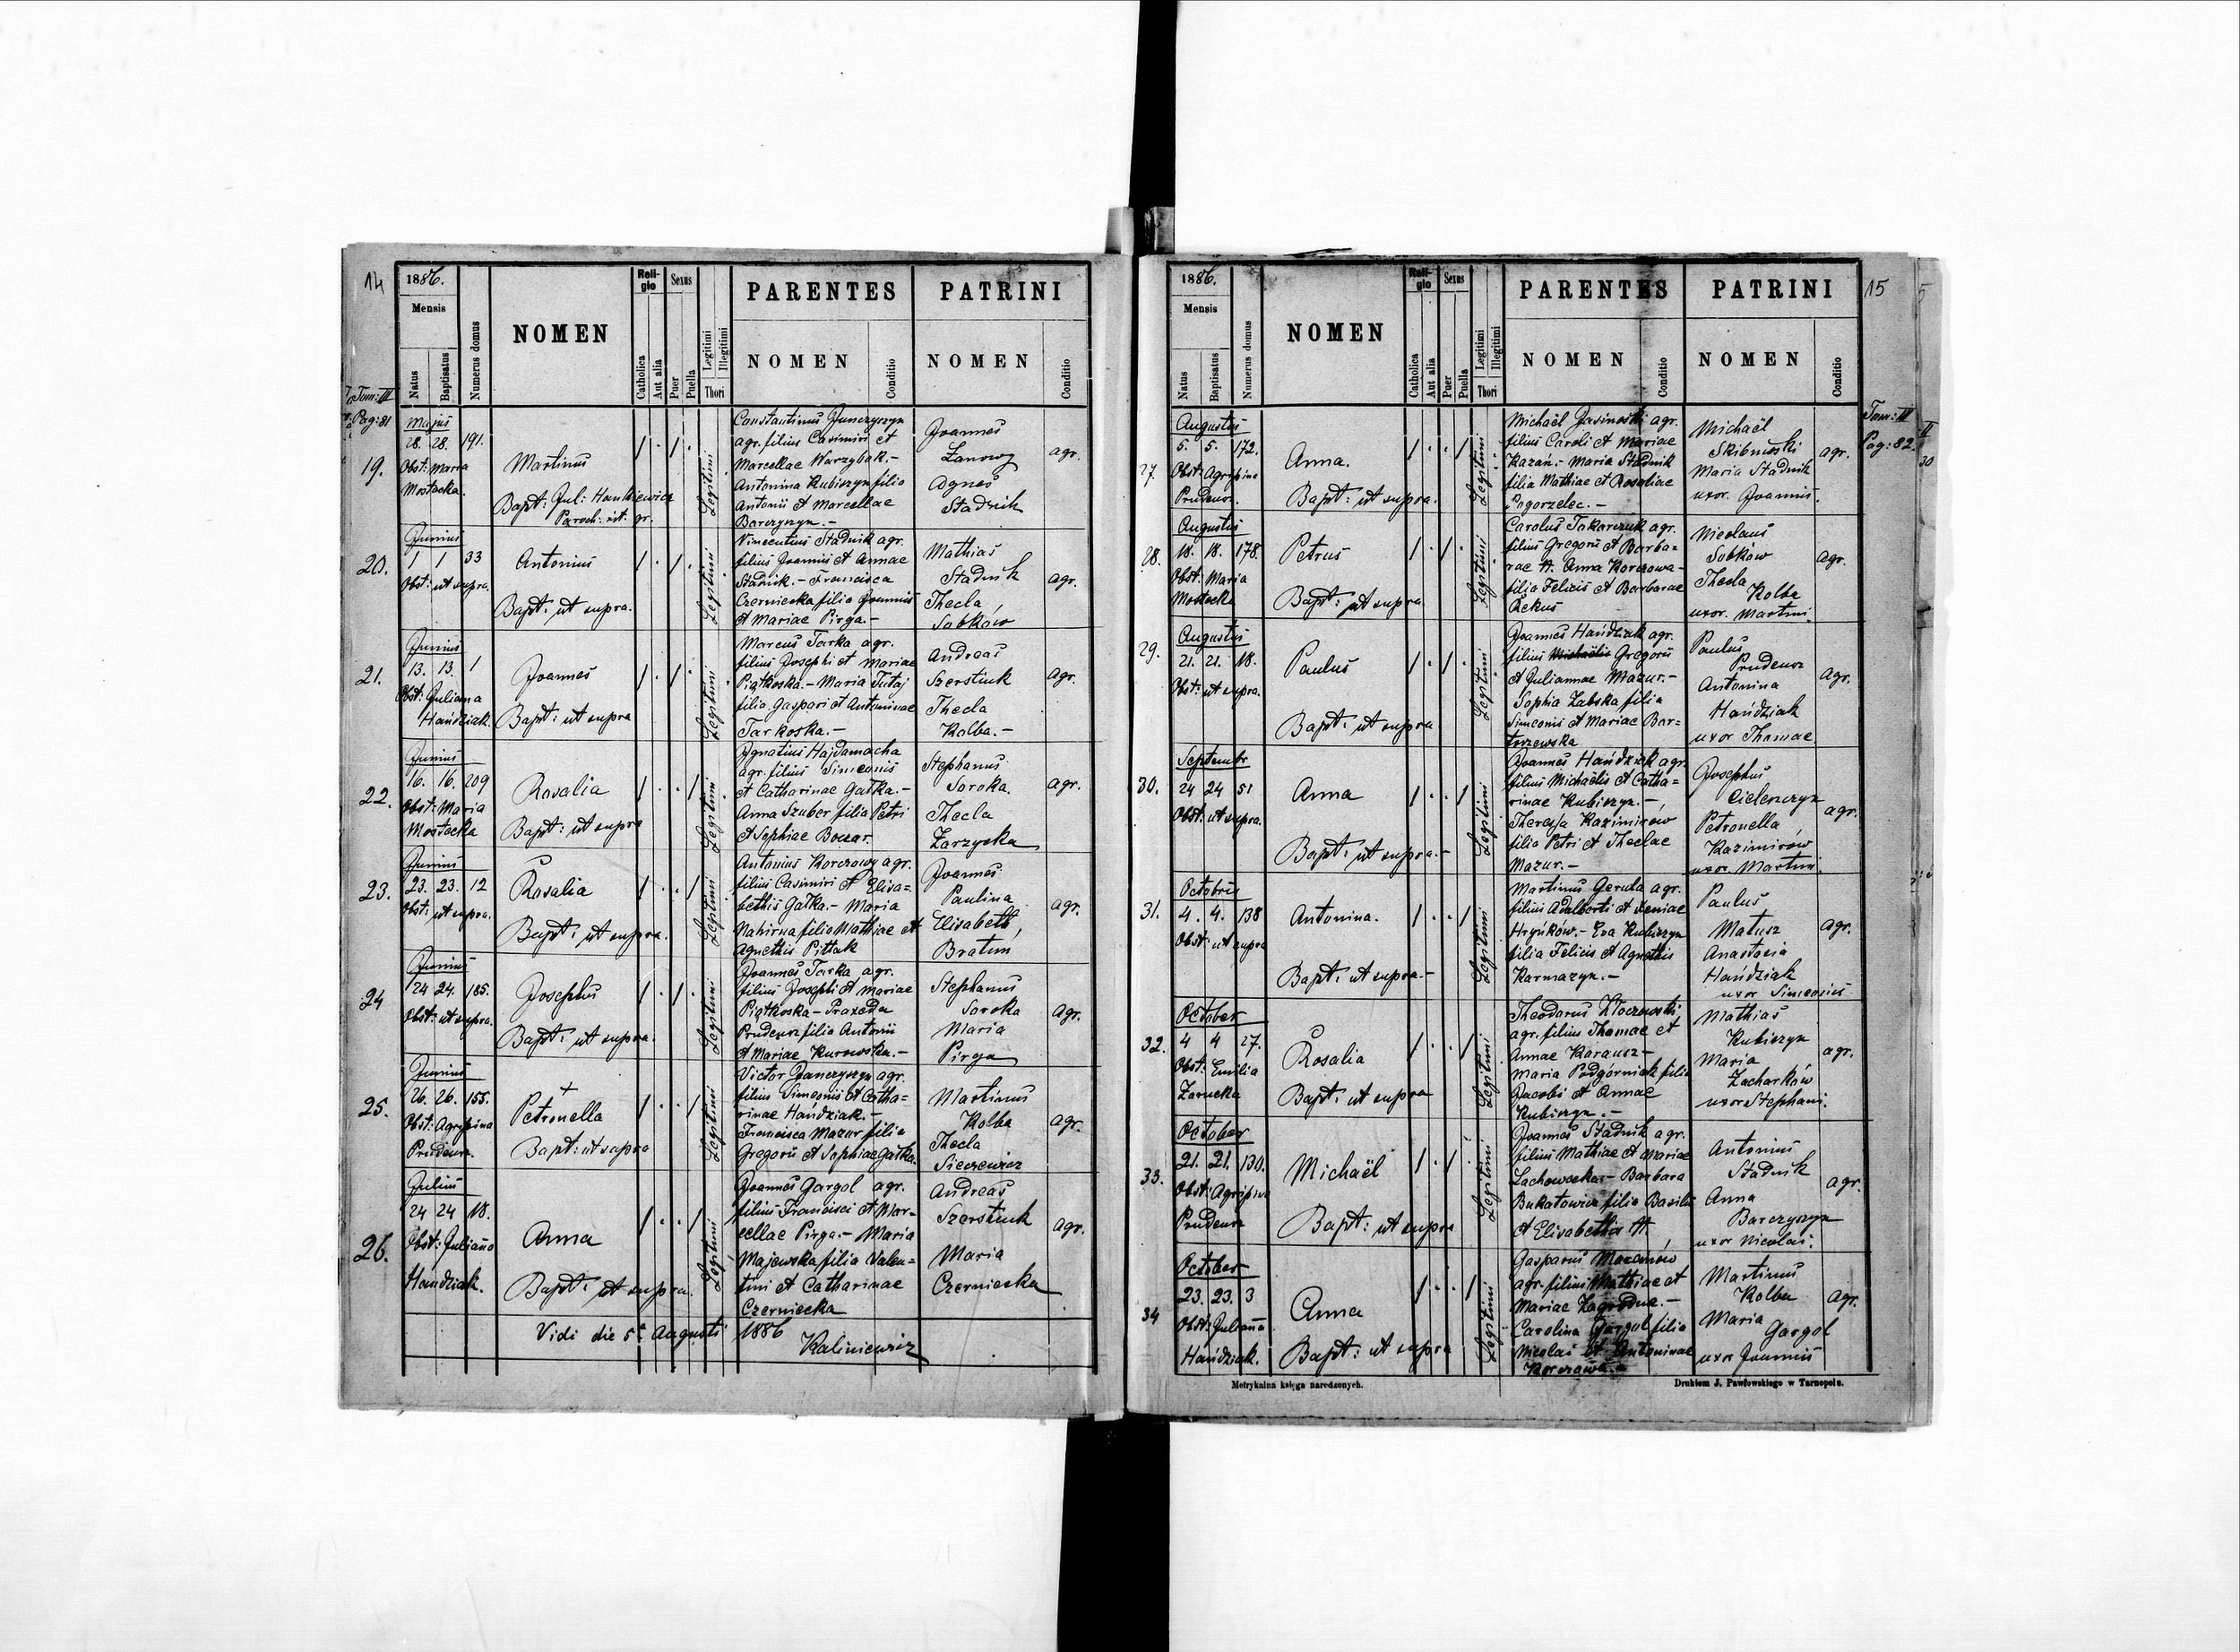 14
1886.
Mensis
Natus
Baptisatus
Numerus domus
NOMEN
Religio
Catholica
Aut alia
Sexus
Puer
Puella
Legitimi
Illegitimi
Thori
PARENTES
NOMEN
Conditio
PATRINI
NOMEN
Conditio
Tom: III
Pag: 81
19.
Majus
28. 28. 191.
Obst: Maria
Mostecka.
Martinus
Bapt: Jul: Hankiewicz
Paroch: rit. gr.
Legitimi
Constantinus Janczyszyn
agr. filius Casimiri et
Marcellae Warzybak.-
Antonina Kubiszyn filia
Antonii et Marcellae
Barczyszyn.-
Joannes
Zanowy
Agnes
Stadnik
agr.
20.
Junius
1 1 33
Obst: ut supra.
Antonius
Bapt: ut supra.
Legitimi
Vincentius Stadnik agr.
filius Joannis et Annae
Stadnik.- Francisca
Czerniecka filia Joannis
et Mariae Pirga.-
Mathias
Stadnik
Thecla
Sobków
agr.
21.
Junius
13. 13. 1
Obst: Juliana
Hańdziak
Joannes
Bapt: ut supra
Legitimi
Marcus Tarka agr.
filius Josephi et Mariae
Piątkoska.- Maria Tutaj
filia Gaspari et Antoninae
Tarkoska.-
Andreas
Szerstiuk
Thecla
Kolba.-
agr.
22.
Junius
16. 16. 209
Obst: Maria
Mostecka
Rosalia
Bapt: ut supra
Legitimi
Ignatius Hajdamacha
agr. filius Simeonis
et Catharinae Gałka.-
Anna Szuber filia Petri
et Sophiae Boczar.
Stephanus
Soroka.
Thecla
Zarzycka
agr.
23.
Junius
23. 23. 12
Obst: ut supra.
Rosalia
Bapt: ut supra.
Legitimi
Antonius Korczowy agr.
filius Casimiri et Elisa=
bethis Gałka.- Maria
Nahirna filia Mathiae et
Agnethis Pittak
Joannes
Paulina
Elisabeth
Bratun
agr.
24
Junius
24 24. 185.
Obst: ut supra.
Josephus
Bapt: ut supra.
Legitimi
Joannes Tarka agr.
filius Josephi et Mariae
Piątkoska- Praxeda
Prudeusz filia Antonii
et Mariae Kurowska.-
Stephanus
Soroka
Maria
Pirga
agr.
25.
Junius
26. 26. 155.
Obst: Agripina
Prudeusz.
Petronella
Bapt: ut supra
Legitimi
Victor Janczyszyn agr.
filius Simeonis et Catha=
rinae Hańdziak.-
Francisca Mazur filia
Gregorii et Sophiae Gałka.
Martinus
Kolba
Thecla
Sieczewicz
agr.
26.
Julius
24 24 18.
Obst: Juliana
Handziak.
Anna
Bapt: ut supra.
Legitimi
Joannes Gargol agr.
filius Francisci et Mar-
cellae Pirga.- Maria
Majewska filia Valen=
tini et Catharinae
Czerniecka
Andreas
Szerstiuk
Maria
Czerniecka
agr.
Vidi die 5ta Augusti 1886
Kaliniewicz
15
1886.
Mensis
Natus
Baptisatus
Numerus domus
NOMEN
Religio
Catholica
Aut alia
Sexus
Puer
Puella
Legitimi
Illegitimi
Thori
PARENTES
NOMEN
Conditio
PATRINI
NOMEN
Conditio
Tom: III
Pag: 82
27.
Augustus
5. 5. 172.
Obst: Agripina
Prudeusz.
Anna.
Bapt: ut supra.
Legitimi
Michaël Jasinoski agr.
filius Caroli et Mariae
Kazań.- Maria Stadnik
filia Mathiae et Rosaliae
Pogorzelec.-
Michaël
Skibnoski
Maria Stadnik
uxor. Joannis.
agr.
28.
Augustus
18. 18. 178.
Obst: Maria
Mostecka
Petrus
Bapt: ut supra.
Legitimi
Carolus Tokarczuk agr.
filius Gregorii et Barba=
rae H. Anna Korczowa-
filia Felicis et Barbarae
Nicolaus
Sobków
Thecla
Kolba
uxor. Martini.
agr.
29.
Augustus
21. 21. 18.
Obst: ut supra.
Paulus
Bapt: ut supra
Legitimi
Joannes Hańdziak agr.
filius Michaëlis Gregorii
et Juliannae Mazur.-
Sophia Zabska filia
Simeonis et Mariae Bar=
torzewska
Paulus
Prudeusz
Antonina
Hańdziak
uxor Thomae.
agr.
30.
Septembr
24 24 51
Obst: ut supra.
Anna
Bapt: ut supra.-
Legitimi
Joannes Hańdziak agr.
filius Michaëlis et Catha=
rinae Kubiszyn.-
Theresa Kazimirów
filia Petri et Theclae
Mazur.-
Josephus
Cielenczyn
Petronella
Kazimirów
uxor. Martini.
agr.
31.
Octobris
4. 4. 138
Obst: ut supra
Antonina.
Bapt: ut supra.-
Legitimi
Martinus Gerula agr.
filius Adalberti et Xeniae
Hryńków.- Eva Kubiszyn
filia Felicis et Agnethis
Karmazyn.-
Paulus
Matusz
Anastasia
Hańdziak
uxor Simeonis
agr.
32.
October
4 4 27.
Obst: Emilia
Zarucka
Rosalia
Bapt: ut supra
Legitimi
Theodorus Kłoczowski,
agr. filius Thomae et
Annae Karausz-
Maria Podgórniak filia
Jacobi et Annae
Kubiszyn.-
Mathias
Kubiszyn
Maria
Zacharków
uxor Stephani.
agr.
33.
October
21. 21. 130.
Obst: Agripina
Prudeusz
Michaël
Bapt: ut supra
Legitimi
Joannes Stadnik agr.
filius Mathiae et Mariae
Lachowecka- Barbara
Bukatowicz filia Basilii
et Elisabethis H.
Antonius
Stadnik
Anna
Barczyszyn
uxor Nicolai.
agr.
34
October
23. 23. 3
Obst: Juliana
Hańdziak.
Anna
Bapt: ut supra
Legitimi
Gasparus Mazanów
agr. filius Mathiae et
Mariae Zagrodna.-
Carolina Gargol filia
Nicolai et Antoninae
Korczowa.-
Martinus
Kolba
Maria
Gargol
uxor Joannis
agr.
Metrykalna księga narodzonych.
Drukiem J. Pawłowskiego w Tarnopolu.